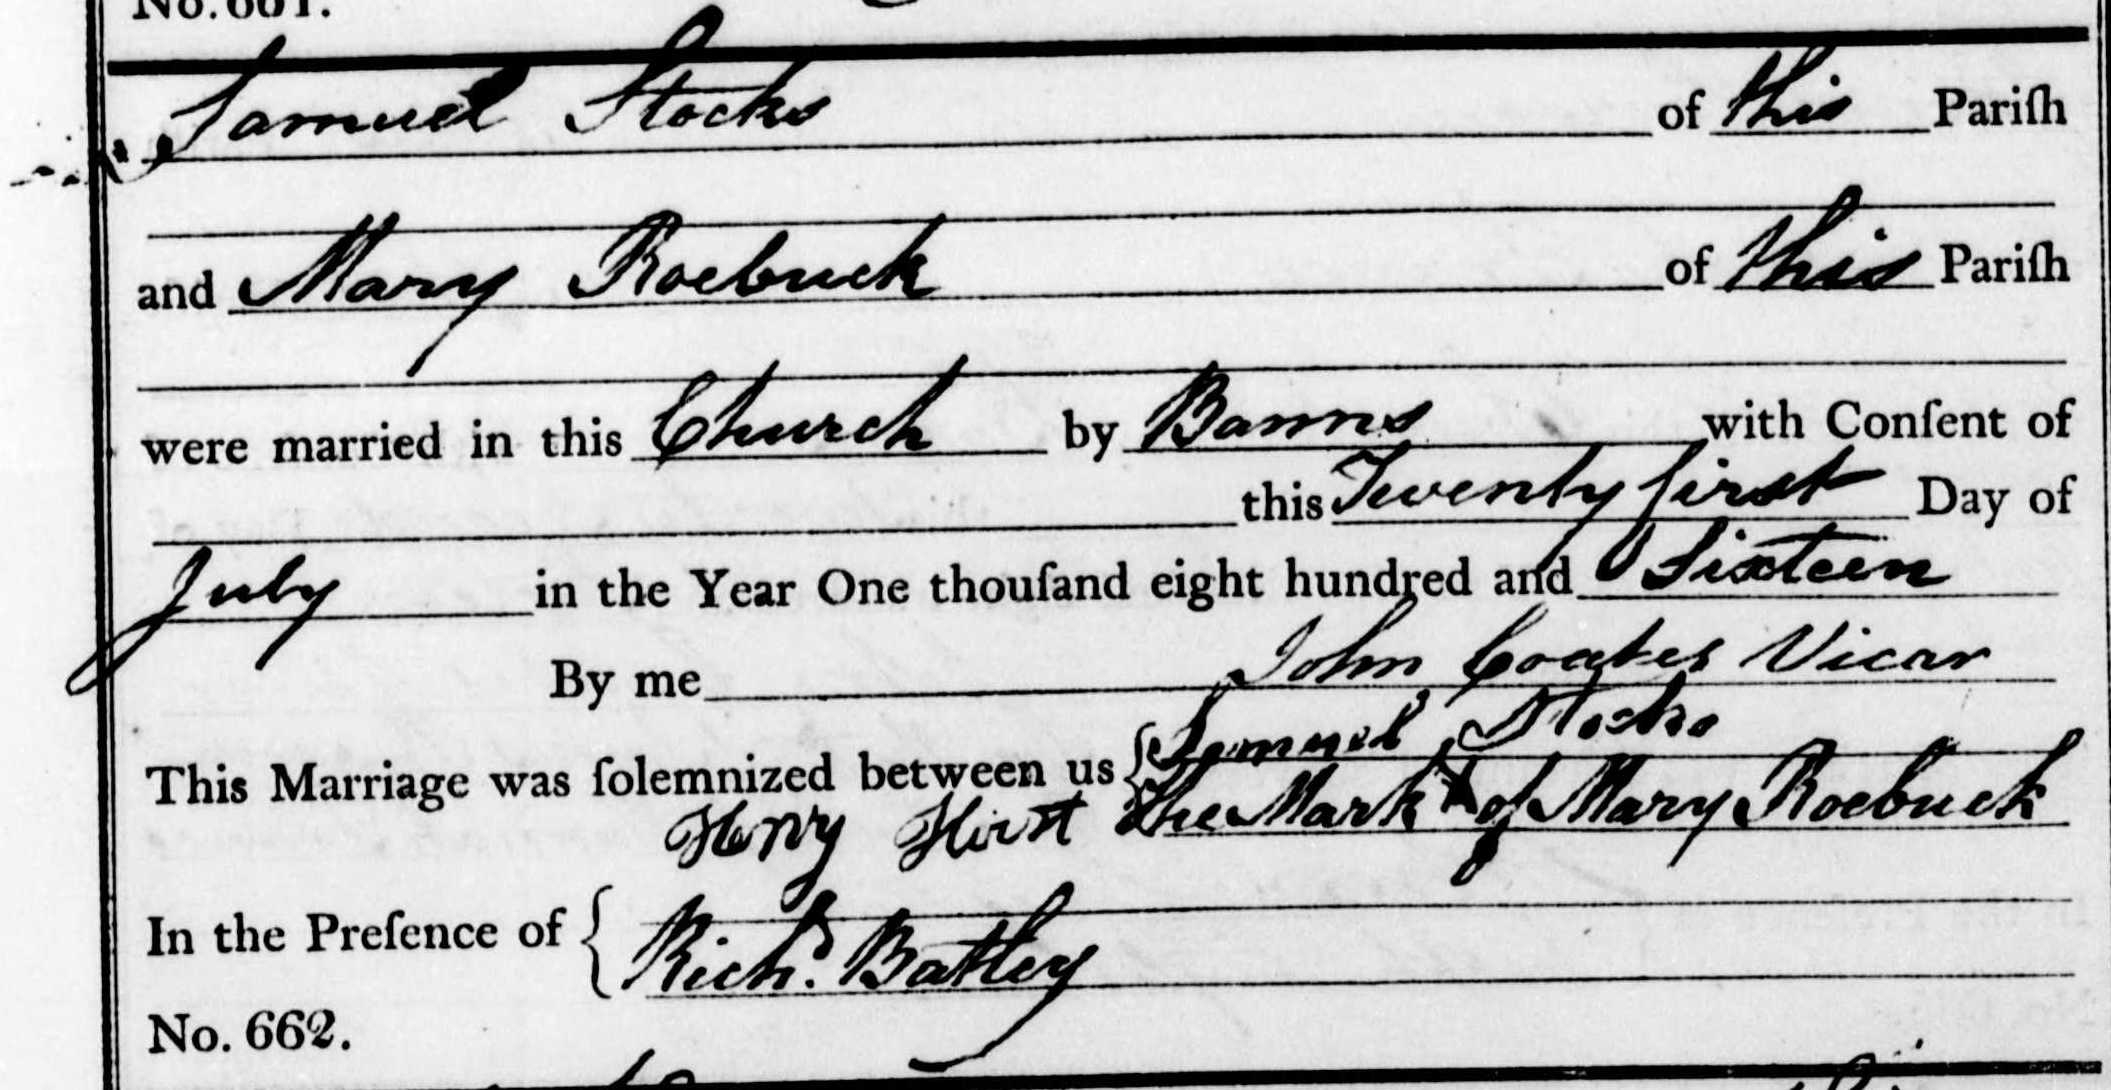 No. 661.
Samuel Stocks of this Pariſh
and Mary Roebuck of this Pariſh
were married in this Church by Banns with Conſent of
this Twenty first Day of
July in the Year One thouſand eight hundred and Sixteen
By me John Coates Vicar
This Marriage was ſolemnized between us { Samuel Stocks
The Mark X of Mary Roebuck
Henry Hirst
In the Preſence of { Richd. Batley
No. 662.